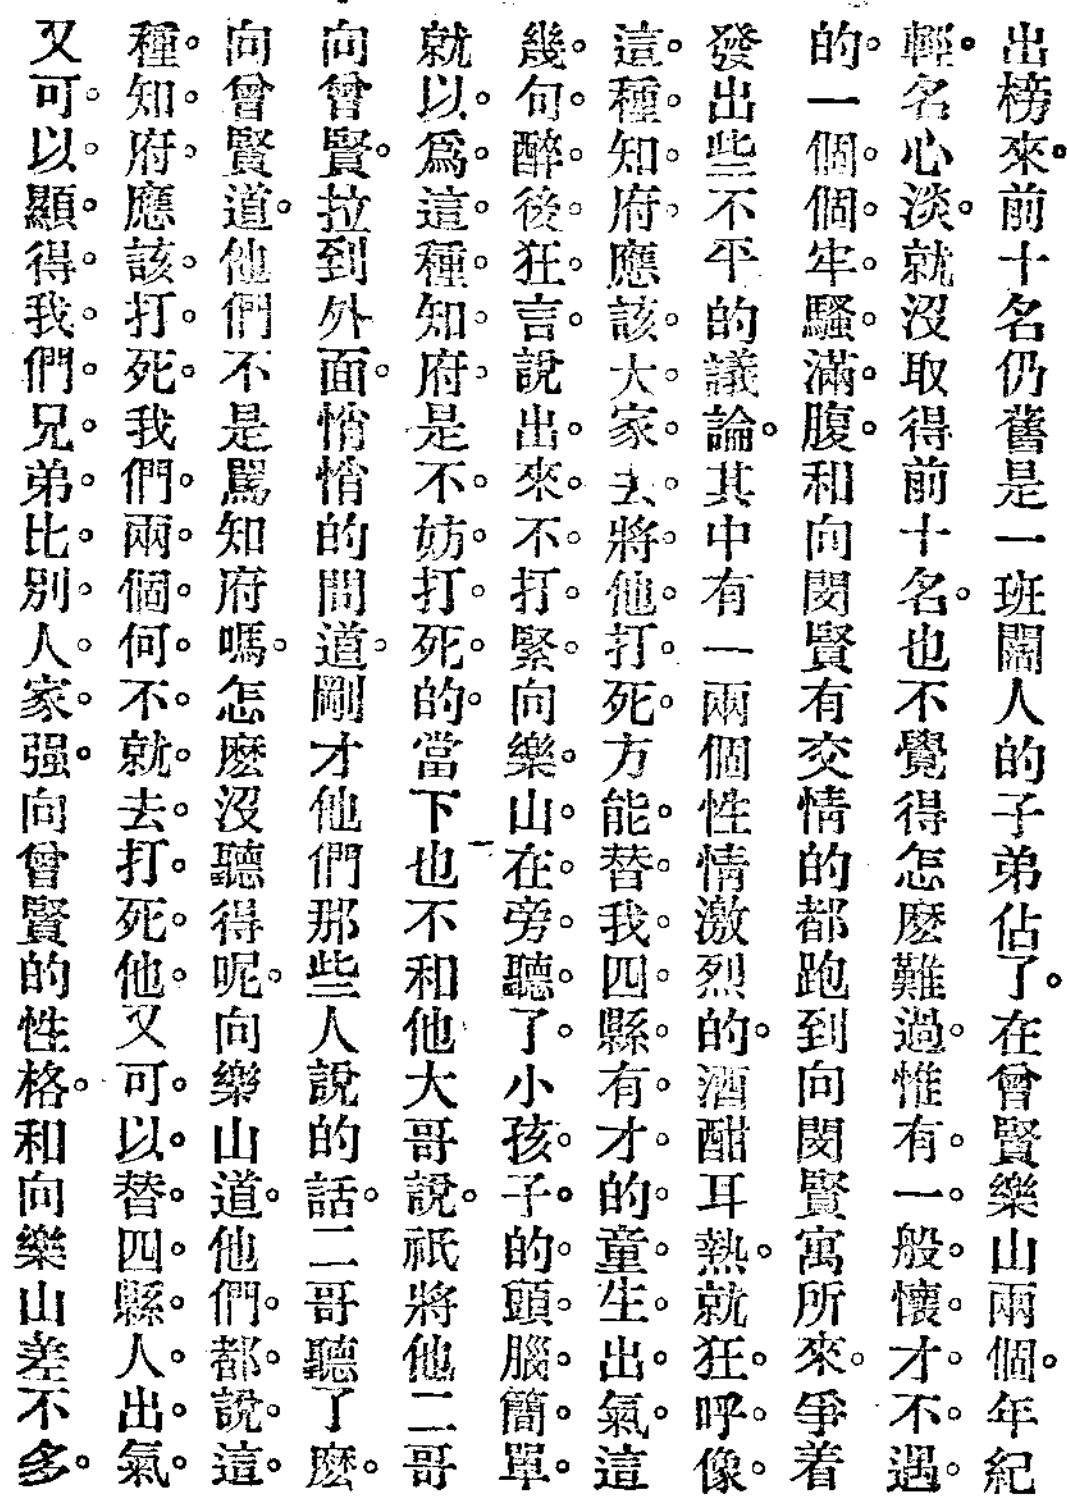 出榜來。前十名仍舊是一班闊人的子弟佔了。在曾賢樂山兩個。年紀
輕。名心淡。就沒取得前十名。也不覺得怎麽難過。惟有。一。般。懷。才。不。遇。
的。一個。個。牢。騷。滿。腹。和向閔賢有交情的都跑到向閔賢寓所來。爭着
發出些不平的議論。其中有一兩個性情激烈的。酒酣耳熱。就狂。呼。像。
這。種。知。府。應。該。大。家。去。將。他。打。死。方能。替。我。四。縣。有。才。的。童。生。出。氣。這
幾。句。醉。後。狂。言。說出。來。不。打。緊。向樂。山。在。旁。聽。了。小孩。子。的。頭。腦。簡。單。
就以。爲。這。種。知。府。是不。妨。打。死。的。當下也不和他大哥說。祇將他二哥
向曾賢。拉到外面。悄悄的問道。剛才他們那些人說的話。二哥聽了麽。
向曾賢道。他們不是罵知府嗎。怎麽沒聽得呢。向樂山道。他們。都。說。這。
種。知。府。應該。打。死。我們。兩。個。何。不。就。去。打。死。他。又可。以。替。四。縣。人。出。氣。
又可。以。顯。得。我。們。兄。弟。比。別。人。家。强。向曾賢的性格。和向樂山差不多。